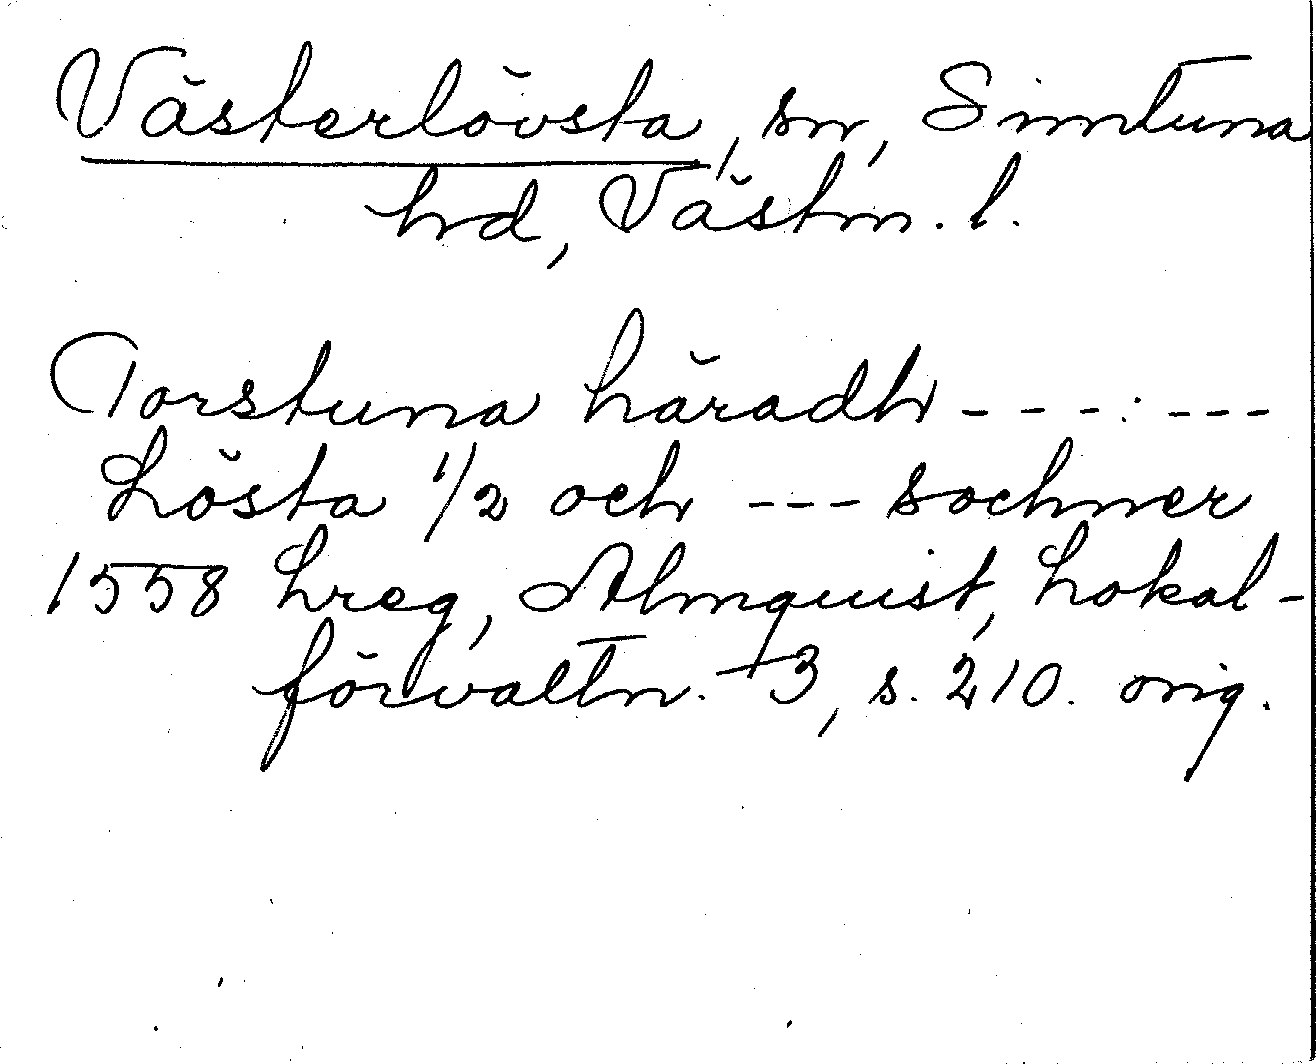 Västerlövsta, sn, Simtuna
hrd, Västm. l.
Torstuna häradh - - - . - - -
Lösta 1/2 och - - - sochner
1558 hreg, Almquist, Lokal-
förvaltn. 3, s. 210. orig.